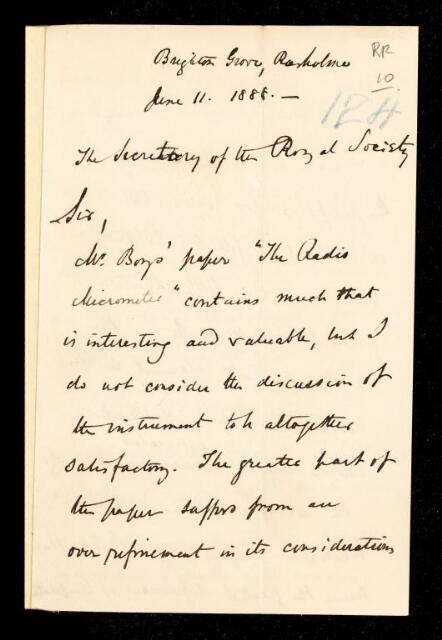 Brighton Grove, Rusholme
RR
10
June 11. 1888. —
124
The Secretary of the Royal Society
Sir,
Mr. Boys' paper "The Radio
Micrometer" contains much that
is interesting and valuable, but I
do not consider the discussion of
the instrument to be altogether
satisfactory. The greater part of
the paper suffers from an
over refinement in its considerations